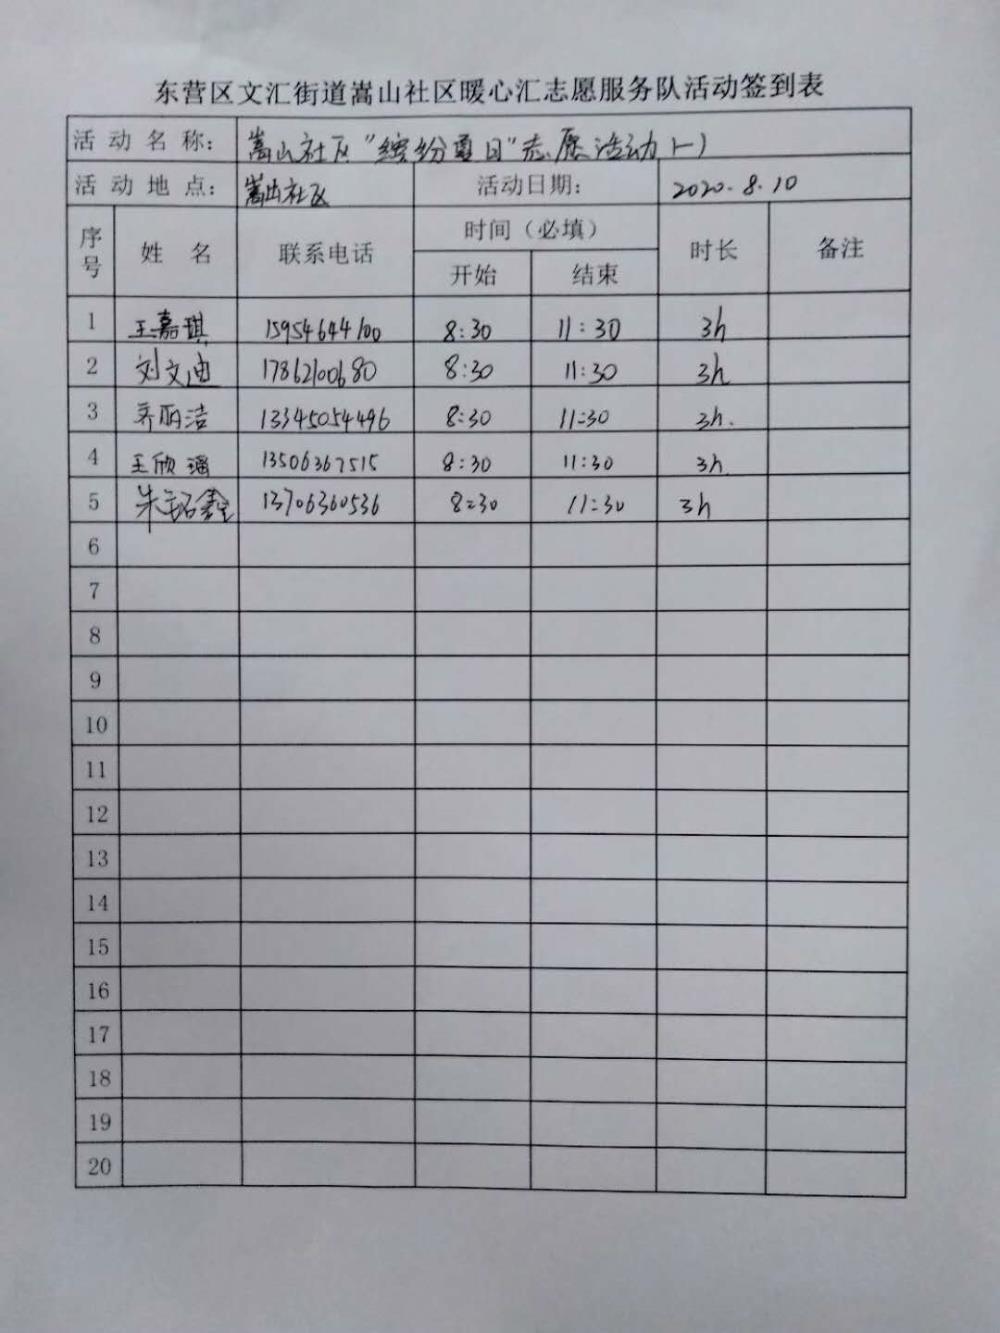 东营区文汇街道嵩山社区暖心汇志愿服务队活动签到表
活动名称： 嵩山社区"缤纷夏日"志愿活动(一)
活动地点： 嵩山社区 活动日期： 2020.8.10
序号 姓名 联系电话 时间（必填） 时长 备注
开始 结束
1 王嘉琪 15954644100 8:30 11:30 3h
2 刘文迪 17862100680 8:30 11:30 3h
3 乔丽洁 13345054496 8:30 11:30 3h.
4 王欣瑶 13506367515 8:30 11:30 3h
5 朱铭鑫 13706360536 8:30 11:30 3h
6
7
8
9
10
11
12
13
14
15
16
17
18
19
20